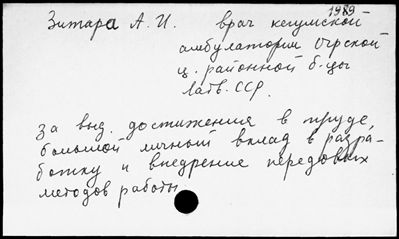 1989
Зитара А. И. врач кегумской
амбулатории Огрской
ц. районной б-цы
Латв. ССР.
за выд. достижения в труде,
большой личный вклад в разра-
ботку и внедрение передовых
методов работы